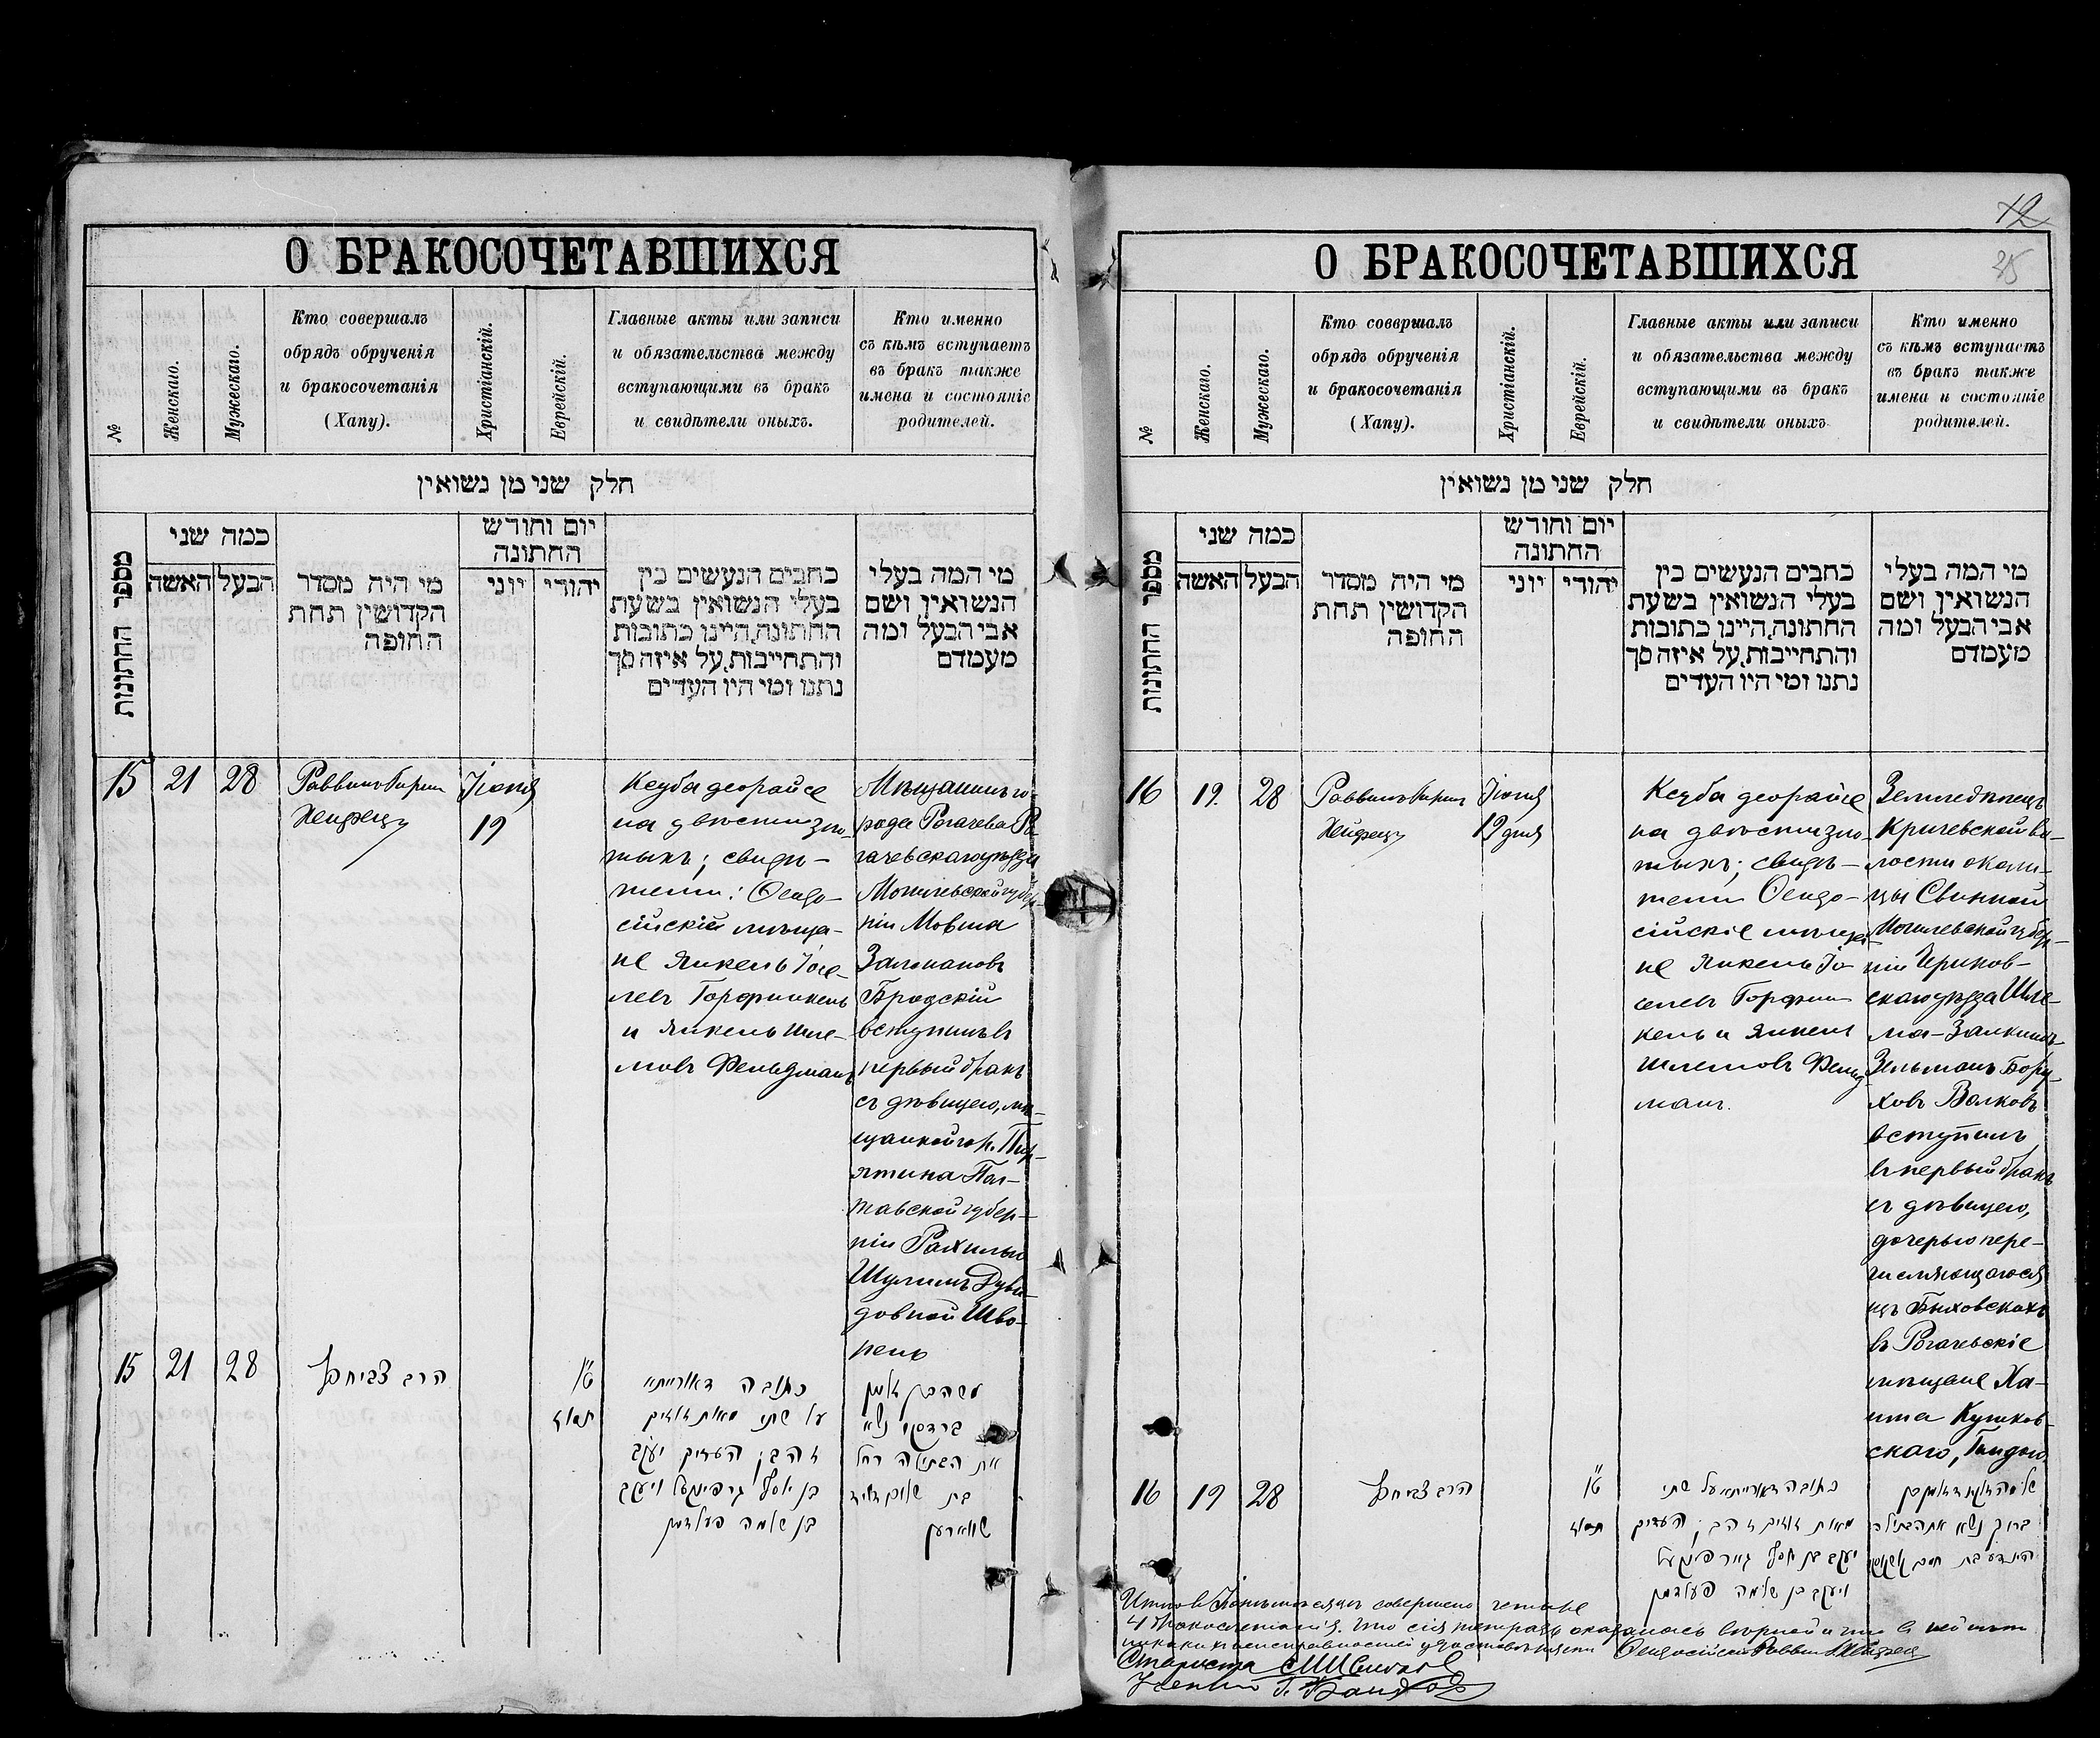 О БРАКОСОЧЕТАВШИХСЯ
№
Женскаго.
Мужескаго.
Кто совершалъ
обрядъ обрученія
и бракосочетанія
(Хапу).
Христіанскій.
Еврейскій.
Главные акты или записи
и обязательства между
вступающими въ бракъ
и свидѣтели оныхъ.
Кто именно
съ кѣмъ вступаетъ
въ бракъ также
имена и состояніе
родителей.
חלק שני מן נשואין
מספר החתונות
כמה שני
האשה
הבעל
מי היה מסדר
הקדושין תחת
החופה
יום וחודש
החתונה
יוני
יהודי
כתבים הנעשים בין
בעלי הנשואין בשעת
החתונה, היינו כתובות
והתחייבות, על איזה סך
נתנו ומי היו העדים
מי המה בעלי
הנשואין ושם
אבי הבעל ומה
מעמדם
15
21
28
Раввинъ
Хейфецъ
Іюня
19
Кцуба деорайсе
на двѣсти зло-
тыхъ; свидѣ-
тели: Ѳеодо-
сійскіе мѣща-
не Янкель Іосе-
левъ Горфинкель
и Янкель Шле-
мовъ Фельдманъ
Мѣщанинъ го-
рода Рогачева Ро-
гачевскаго уѣзда
Могилевской губер-
ніи Мовша
Залмановъ
Бродскій
вступилъ въ
первый бракъ
съ дѣвицею, мѣ-
щанкой гор. Пир-
ятина Пол-
тавской губер-
ніи Рахилью
Шулимъ-Дуви-
довной Шво-
рень
15
21
28
הרב צבי חפץ
ט"ו
תמוז
כתובה דאורייתא
על שתי מאות זוזים
זהב; העדים יעקב
בן יוסף גרפינקעל ויעקב
בן שלמה פעלדמן
משה בן זלמן
ברדסקי נשא
את הבתולה רחל
בת שלום דוד
שווארען
12
25
О БРАКОСОЧЕТАВШИХСЯ
№
Женскаго.
Мужескаго.
Кто совершалъ
обрядъ обрученія
и бракосочетанія
(Хапу).
Христіанскій.
Еврейскій.
Главные акты или записи
и обязательства между
вступающими въ бракъ
и свидѣтели оныхъ.
Кто именно
съ кѣмъ вступаетъ
въ бракъ также
имена и состояніе
родителей.
חלק שני מן נשואין
מספר החתונות
כמה שני
האשה
הבעל
מי היה מסדר
הקדושין תחת
החופה
יום וחודש
החתונה
יוני
יהודי
כתבים הנעשים בין
בעלי הנשואין בשעת
החתונה, היינו כתובות
והתחייבות, על איזה סך
נתנו ומי היו העדים
מי המה בעלי
הנשואין ושם
אבי הבעל ומה
מעמדם
16
19.
28
Раввинъ
Хейфецъ
Іюня
19 дня
Кцуба деорайсе
на двѣсти зло-
тыхъ; свидѣ-
тели Ѳеодо-
сійскіе мѣща-
не Янкель Іо-
селевъ Горфин-
кель и Янкель
Шлемовъ Фельд-
манъ.
Земледѣлецъ
Кричевской во-
лости околи-
цы Свинной
Могилевской губер-
ніи Чериков-
скаго уѣзда Шле-
ма-Залкинъ-
Зельманъ Бору-
ховъ Волковъ
вступилъ
въ первый бракъ
съ дѣвицею,
дочерью пере-
числяющагося
изъ Быховскихъ
въ Рогачевскіе
мѣщане Ха-
има
скаго,
16
19
28
הרב צבי חפץ
ט"ו
תמוז
כתובה דאורייתא על שתי
מאות זוזים זהב; העדים
יעקב בן יוסף גורפינקעל
ויעקב בן שלמה פעלדמן
שלמה זלקינד זלמן בן
ברוך נשא את הבתולה
הינדע בת חיים
совершено четыре
4 бракосочетанія. Что сія тетрадь оказалась вѣрной и что въ ней нѣтъ
никакихъ неисправностей удостовѣряемъ Ѳеодосійскій Раввинъ Хейфецъ
Староста